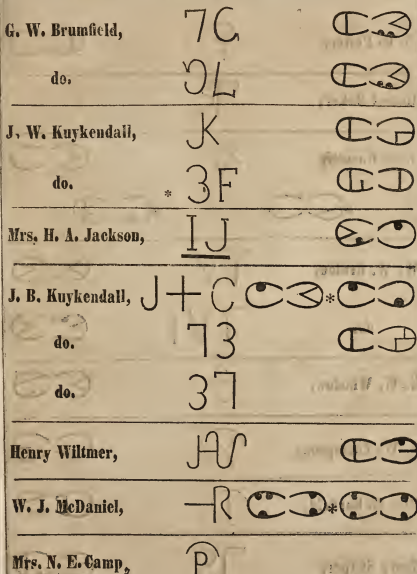 G. W. Brumfield, 7C
do. JL
J. W. Kuykendall, JK
do. * 3F
Mrs. H. A. Jackson, IJ
J. B. Kuykendall, J+C *
do. 73
do. 37
Henry Wiltmer,
W. J. McDaniel, -R *
Mrs. N. E. Camp, P